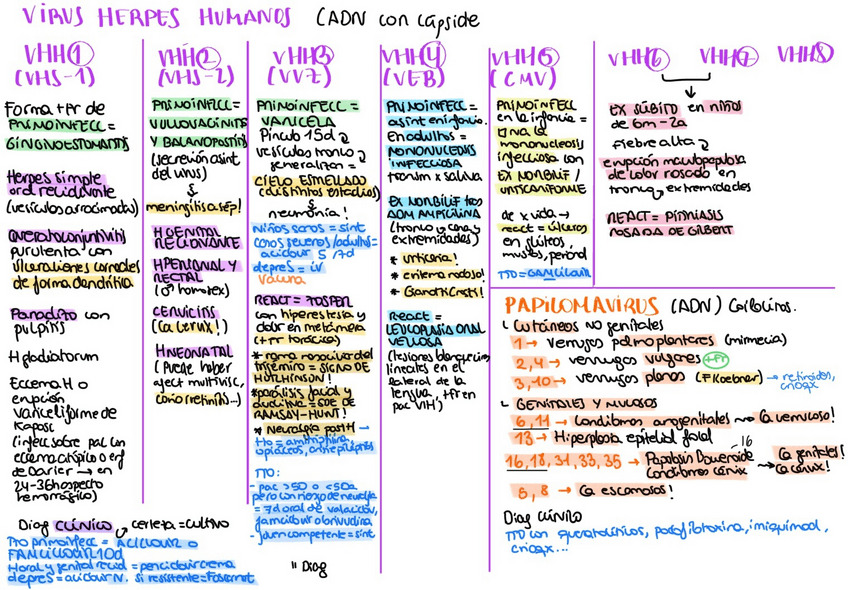 VIRUS HERPES HUMANOS (ADN con cápside
VHH1
(VHS-1)
Forma + fr de
PRIMOINFECC =
GINGIVOESTOMATITIS
Herpes simple
oral recidivante
(vesículas arracimadas)
Queratoconjuntivitis
purulenta con
ulceraciones corneales
de forma dendrítica
Panadizo con
pulpitis
H gladiatorum
Eccema H o
erupción
variceliforme de
Kaposi
(infecc sobre pac con
eccema atópico o enf
de Darier → en
24-36h aspecto
hemorrágico)
VHH2
(VHS-2)
PRIMOINFECC =
VULVOVAGINITIS
Y BALANOPOSTITIS
(secreción asint
del virus)
meningitis asép!
H GENITAL
RECIDIVANTE
H PERIANAL Y
RECTAL
(♂ homosex)
CERVICITIS
(Ca cervix!)
H NEONATAL
(Puede haber
afect multivisc,
coriorretinitis...)
Diag clínico, certeza = cultivo
TTO primoinfecc = ACICLOVIR o
FAMCICLOVIR 10d
H oral y genital recid = penciclovir crema
depres = aciclovir IV. si resistente = Foscarnet
VHH3
(VVZ)
PRIMOINFECC =
VARICELA
P incub 15d
vesículas tronco
generalizan =
CIELO ESTRELLADO
(distintos estadios)
neumonía!
Niños sanos = sint
casos severos/adultos =
aciclovir 5/7d
depres = iv
Vacuna
REACT = ZOSTER
con hiperestesia y
dolor en metámera
(+ fr torácica)
* rama nasociliar del
trigémino = SIGNO DE
HUTCHINSON!
* parálisis facial y
auditiva = SDE DE
RAMSAY-HUNT!
* Neuralgia postH
tto = amitriptilina,
opiáceos, antiepilépticos
TTO:
- pac >50 o <50a
pero con riesgo de neuralgia
= 7d oral de valaciclov,
famciclovir o brivudina
- joven competente = sint
" Diag
VHH4
(VEB)
PRIMOINFECC =
asint en infancia.
En adultos =
MONONUCLEOSIS
INFECCIOSA
transm x saliva
EX MORBILIF tras
ADM AMPICILINA
(tronco, cara y
extremidades)
* urticaria!
* eritema nodoso!
* Gianotti Crosti!
React =
LEUCOPLASIA ORAL
VELLOSA
(lesiones blanquecinas
lineales en el
lateral de la
lengua, + fr en
pac VIH)
VHH5
(CMV)
PRIMOINFECC
en la infancia =
mononucleosis
infecciosa con
EX MORBILIF/
URTICARIFORME
de x vida →
react = úlceras
en glúteos,
muslos, perianal
TTO = GANCICLOVIR
VHH6 VHH7 VHH8
EX SÚBITO en NIÑOS
de 6m - 2a
Fiebre alta
erupción maculopapulosa
de color rosado en
tronco y extremidades
REACT = PITIRIASIS
ROSADA DE GILBERT
PAPILOMAVIRUS (ADN)
Cutáneos no genitales
1 → verrugas palmoplantares (mirmecia)
2,4 → verrugas vulgares +fr
3,10 → verrugas planas (F Koebner) → retinoides,
crioqx
GENITALES Y MUCOSOS
6,11 → Condilomas anogenitales → Ca verrucoso!
13 → Hiperplasia epitelial focal
16
16,18,31,33,35 → Papulosis Bowenoide Ca genitales!
Condilomas cérvix → Ca cérvix!
5,8 → Ca escamosos!
Diag clínico
TTO con queratolíticos, podofilotoxina, imiquimod,
crioqx...